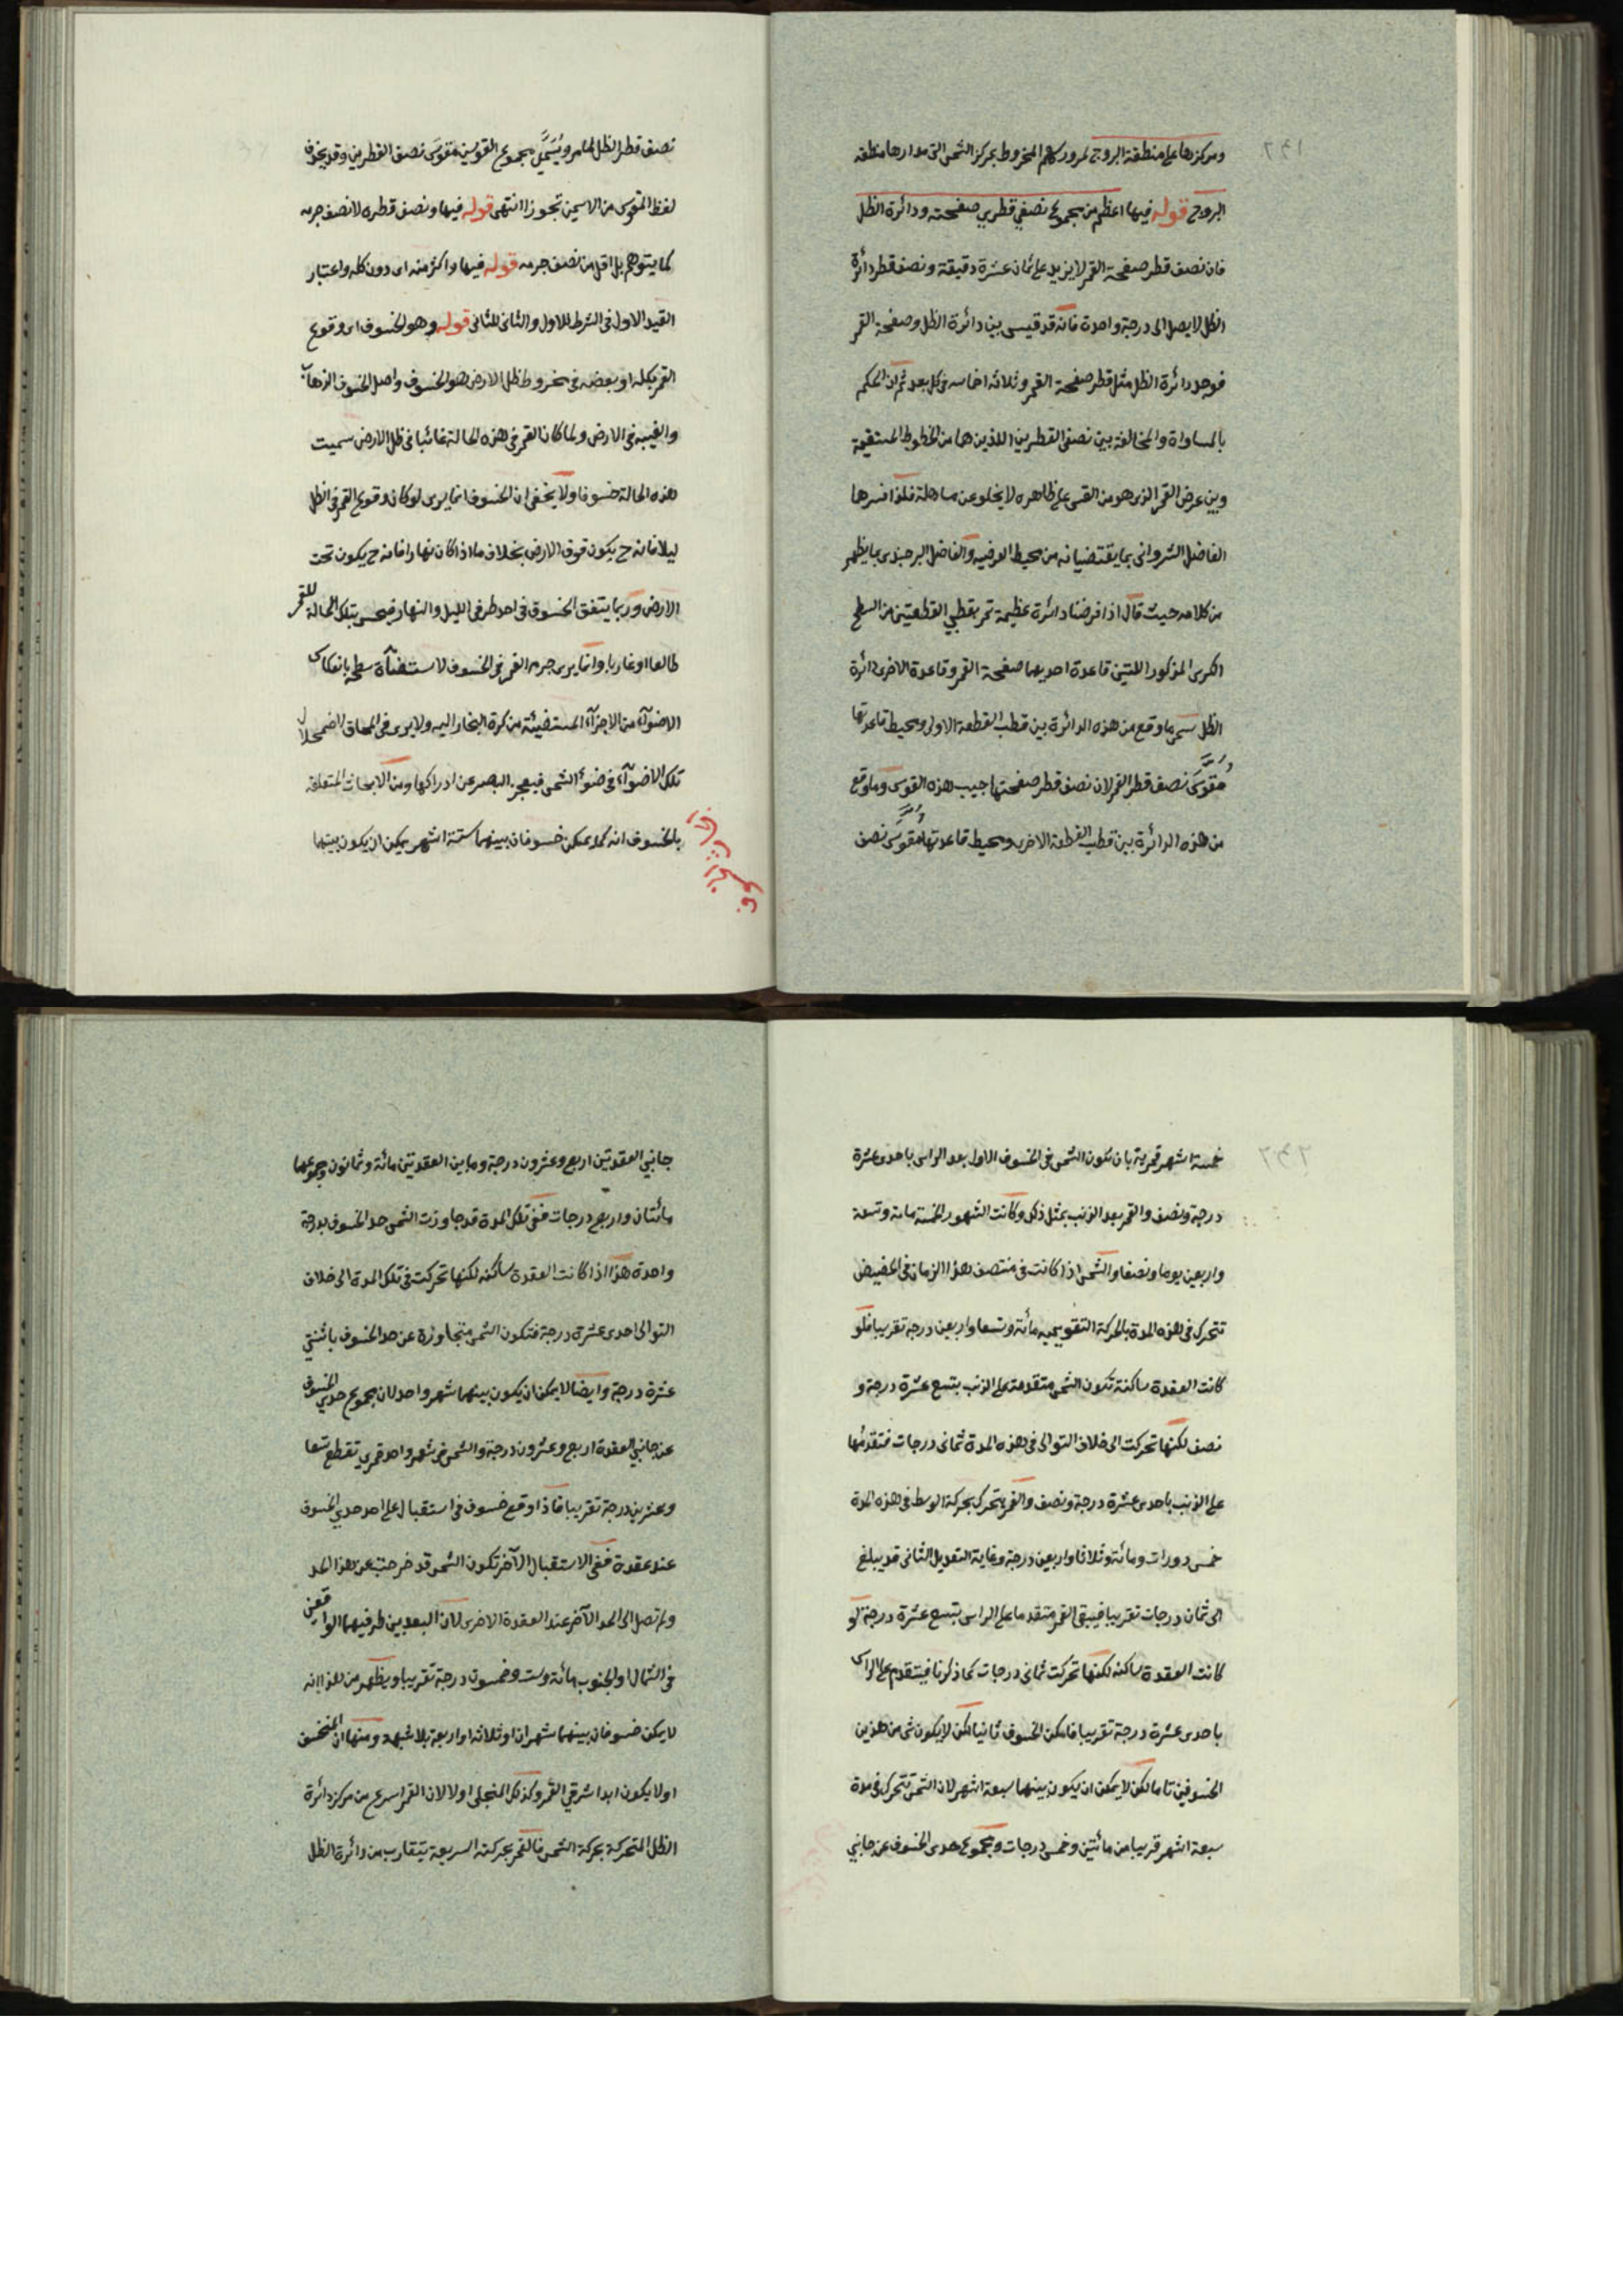 ١٣٦
ومركزها على منطقة البروج لمرور سهم المخروط بمركز الشمس التى مدارها منطقة
البروج قوله فيها اعظم من مجموع نصفي قطري صفحته ودائرة الظل
فان نصف قطر صفحة القمر لا يزيد على ثمان عشرة دقيقة ونصف قطر دائرة
الظل لا يصل الى درجة واحدة فانه قد قيس بين دائرة الظل وصفحة القمر
فوجد دائرة الظل مثل قطر صفحة القمر وثلاثة اخماسه فى كل بعد ثم ان الحكم
بالمساواة والمخالفة بين نصفى القطرين اللذين هما من الخطوط المستقيمة
وبين عرض القمر الذى هو من القسى على ظاهره لا يخلو عن مساهلة فلذا فسرها
الفاضل الشروانى بما يقتضيانه من محيط العرضيه والفاضل البرجندى بما يظهر
من كلامه حيث قال اذا فرضنا دائرة عظيمة تمر بقطبي القطعتين من السطح
الكرى المذكور اللتين قاعدة احديهما صفحة القمر وقاعدة الاخرى دائرة
الظل سمى ما وقع من هذه الدائرة بين قطب القطعة الاولى ومحيط قاعدتها
مقوس نصف قطر القمر لان نصف قطر صفحتها جيب هذه القوس وما وقع
من هذه الدائرة بين قطب القطعة الاخرى ومحيط قاعدتها مقوس نصف
نصف قطر الظل لما مر ويسمى مجموع القوسين مقوس نصف القطرين وقد يحذف
لفظ المقوس من الاسمين تجوزا انتهى قوله فيها ونصف قطره لا نصف جرمه
كما يتوهم بل اقل من نصف جرمه قوله فيها واكثر منه اى دون كله واعتبار
القيد الاول فى الشرط للاول والثانى للثانى قوله وهو الخسوف اى وقوع
القمر بكله او ببعضه فى مخروط ظل الارض هو الخسوف واصل الخسوف الذهاب
والغيبه فى الارض ولما كان القمر فى هذه الحالة غائبا فى ظل الارض سميت
هذه الحالة خسوفا ولا يخفى ان الخسوف انما يرى لو كان وقوع القمر فى الظل
ليلا فانه ح يكون فوق الارض بخلاف ما اذا كان نهارا فانه ح يكون تحت
الارض وربما يتفق الخسوف فى احد طرفى الليل والنهار فيحس بتلك الحالة للقمر
طالعا او غاربا وانما يرى جرم القمر فى الخسوف لاستضاءة سطحه بانعكاس
الاضواء من الاجزاء المستضيئة من كرة البخار اليه ولا يرى فى المحاق لاضمحلال
تلك الاضواء فى ضوء الشمس فيعجز البصر عن ادراكها ومن الابحاث المتعلقة
بالخسوف انه كما يمكن خسوفان بينهما ستة اشهر يمكن ان يكون بينهما
١٣٧
خمسة اشهر قمرية بان يكون الشمس فى الخسوف الاول بعد الراس باحدى عشرة
درجة ونصف والقمر بعد الذنب بمثل ذلك وكانت الشهور الخمسة مائة وتسعة
واربعين يوما ونصفا والشمس اذا كانت فى منتصف هذا الزمان فى الحضيض
تتحرك فى هذه المدة بالحركة التقويميه مائة وتسعا واربعين درجة تقريبا فلو
كانت العقدة ساكنة تكون الشمس متقدمة على الذنب بتسع عشرة درجة و
نصف لكنها تحركت الى خلاف التوالى فى هذه المدة ثمانى درجات فتقدمها
على الذنب باحدى عشرة درجة ونصف والقمر يتحرك بحركة الوسط فى هذه المدة
خمس دورات ومائة وثلاثا واربعين درجة وغاية التعديل الثانى قد يبلغ
الى ثمان درجات تقريبا فيبقى القمر متقدما على الراس بتسع عشرة درجة لو
كانت العقدة ساكنه لكنها تحركت ثمانى درجات كما ذكرنا فيتقدم على الراس
باحدى عشرة درجة تقريبا فامكن الخسوف ثانيا لكن لا يكون شى من هذين
الخسوفين تاما لكن لا يمكن ان يكون بينهما سبعة اشهر لان الشمس تتحرك فى مدة
سبعة اشهر قريبا من مائتين وخمس درجات ومجموع حدى الخسوف عن جانبي
جانبي العقدتين اربع وعشرون درجة وما بين العقدتين مائة وثمانون ومجموعهما
مائتان واربع درجات ففى تلك المدة قد جاوزت الشمس حد الخسوف بدرجة
واحدة هذا اذا كانت العقدة ساكنه لكنها تحركت فى تلك المدة الى خلاف
التوالى احدى عشرة درجة فتكون الشمس متجاوزة عن حد الخسوف باثنتي
عشرة درجة وايضا لا يمكن ان يكون بينهما شهر واحد لان مجموع حدي الخسوف
عن جانبي العقدة اربع وعشرون درجة والشمس فى شهر واحد قمري تقطع تسعا
وعشرين درجة تقريبا فاذا وقع خسوف فى استقبال على احد حدي الخسوف
عند عقدة ففى الاستقبال الآخر تكون الشمس قد خرجت عن هذا الحد
ولم تصل الى الحد الآخر عند العقدة الاخرى لان البعد بين طرفيهما الواقعين
فى الشمال او الجنوب مائة وست وخمسون درجة تقريبا ويظهر من هذا انه
لا يمكن خسوفان بينهما شهران او ثلاثة او اربعة بلا شبهة ومنها ان المنخسف
اولا يكون ابدا شرقي القمر وكذلك المنجلى اولا لان القمر اسرع من مركز دائرة
الظل المتحركة بحركة الشمس فالقمر بحركته السريعة يتقارب من دائرة الظل